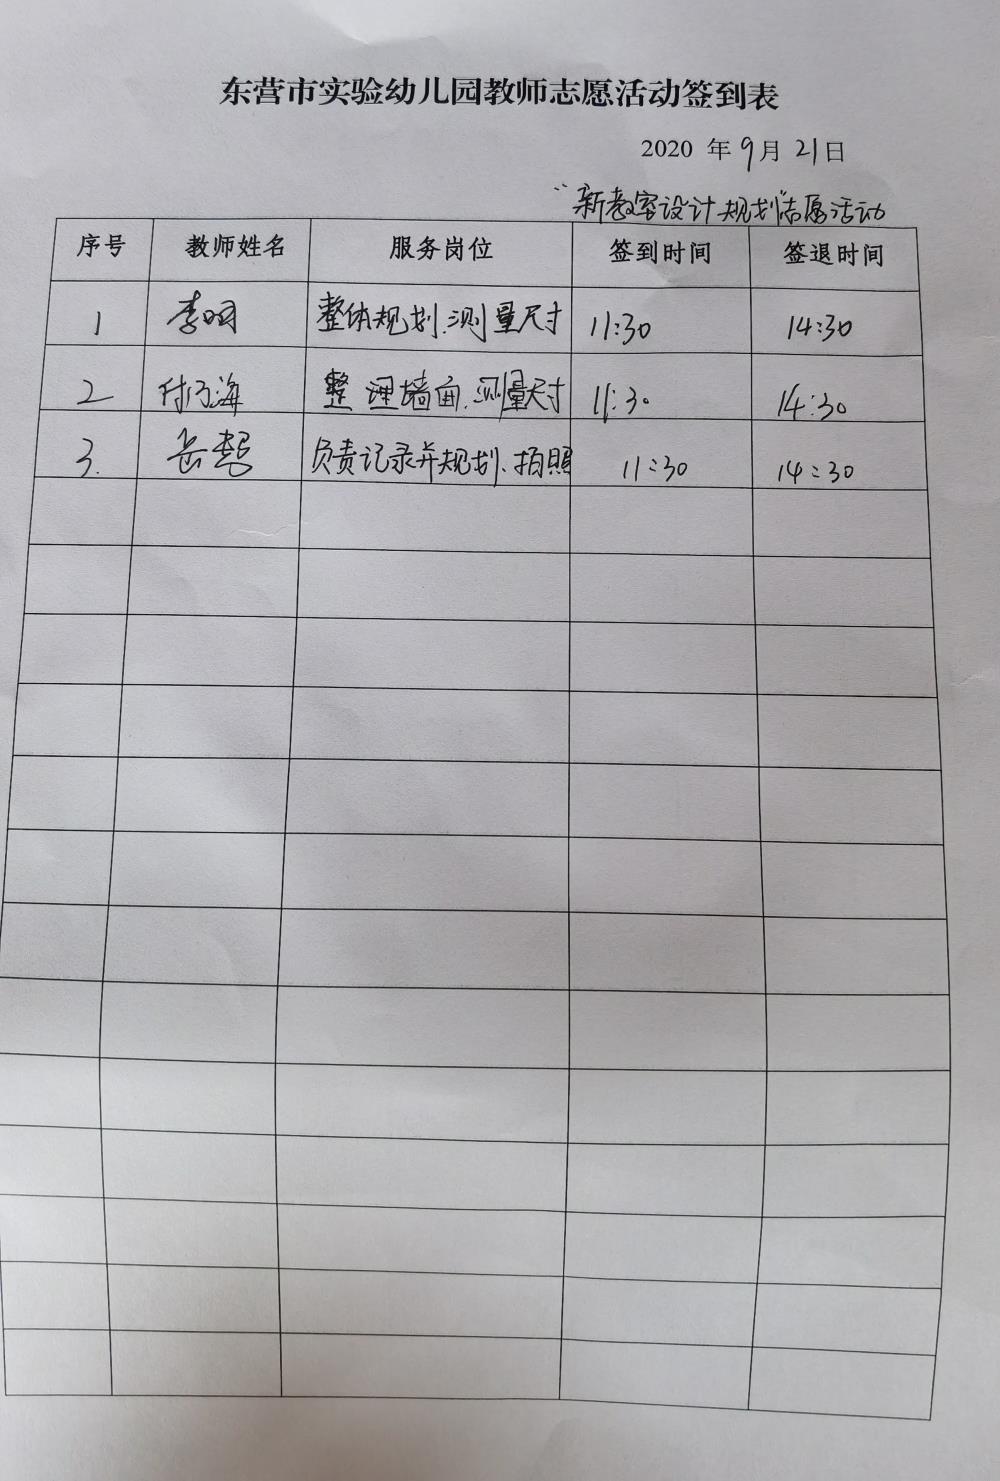 东营市实验幼儿园教师志愿活动签到表
2020 年 9月 21日
“新教室设计规划”志愿活动
序号 教师姓名 服务岗位 签到时间 签退时间
1 李明 整体规划、测量尺寸 11:30 14:30
2 整理墙面、测量尺寸 11:30 14:30
3. 岳 负责记录并规划、拍照 11:30 14:30